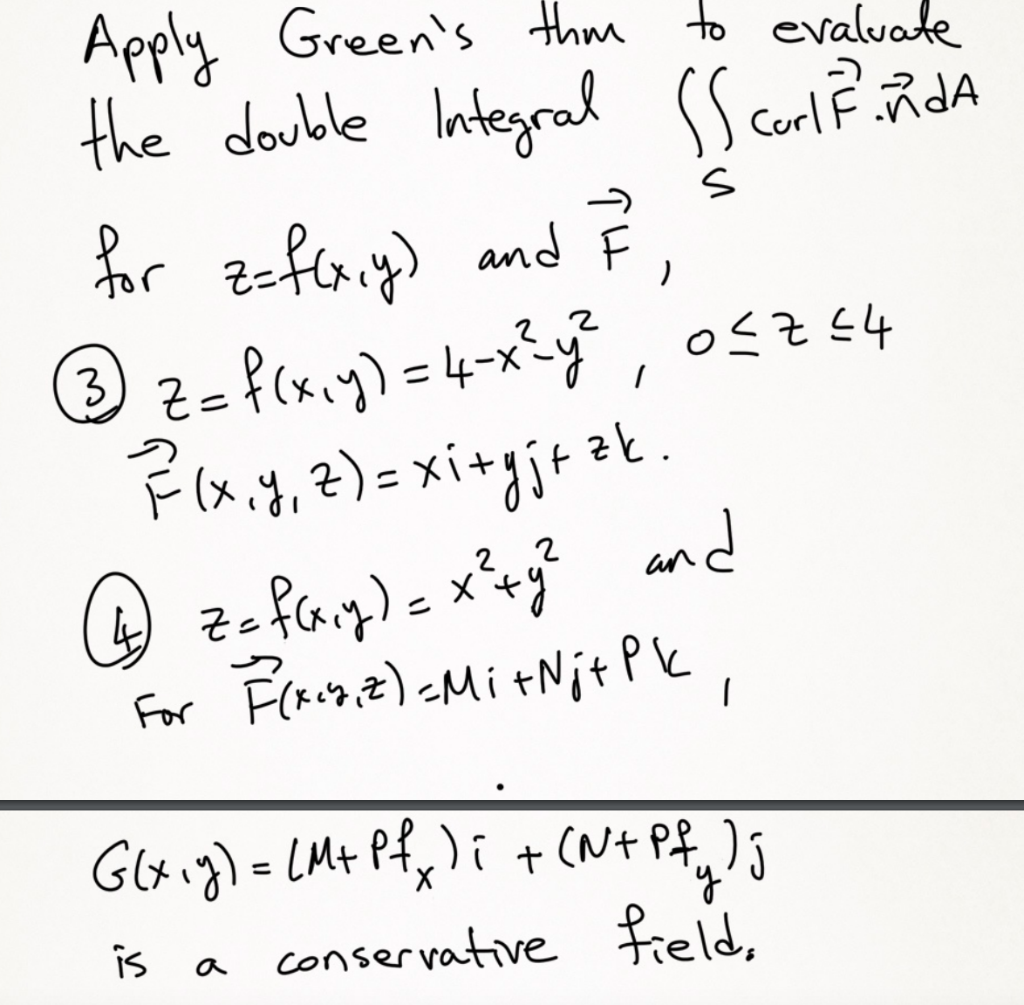 Apply Green's thm to evaluate
the double Integral ∬_S curl F⃗ . n⃗ dA
for z=f(x,y) and F⃗ ,
③ z=f(x,y)=4-x²-y² , 0≤z≤4
F⃗(x,y,z)=xi+yj+zk.
④ z=f(x,y)=x²+y² and
For F⃗(x,y,z)=Mi+Nj+Pk ,
G(x,y)=(M+Pf_x)i+(N+Pf_y)j
is a conservative field.